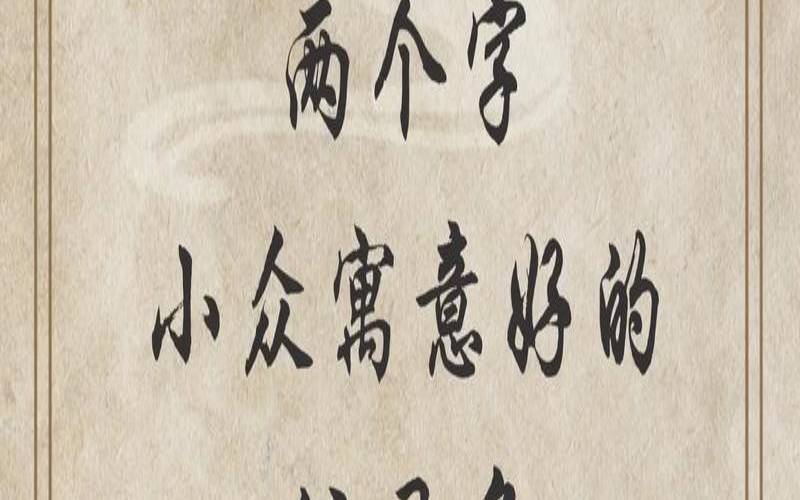 两个字
小众寓意好的